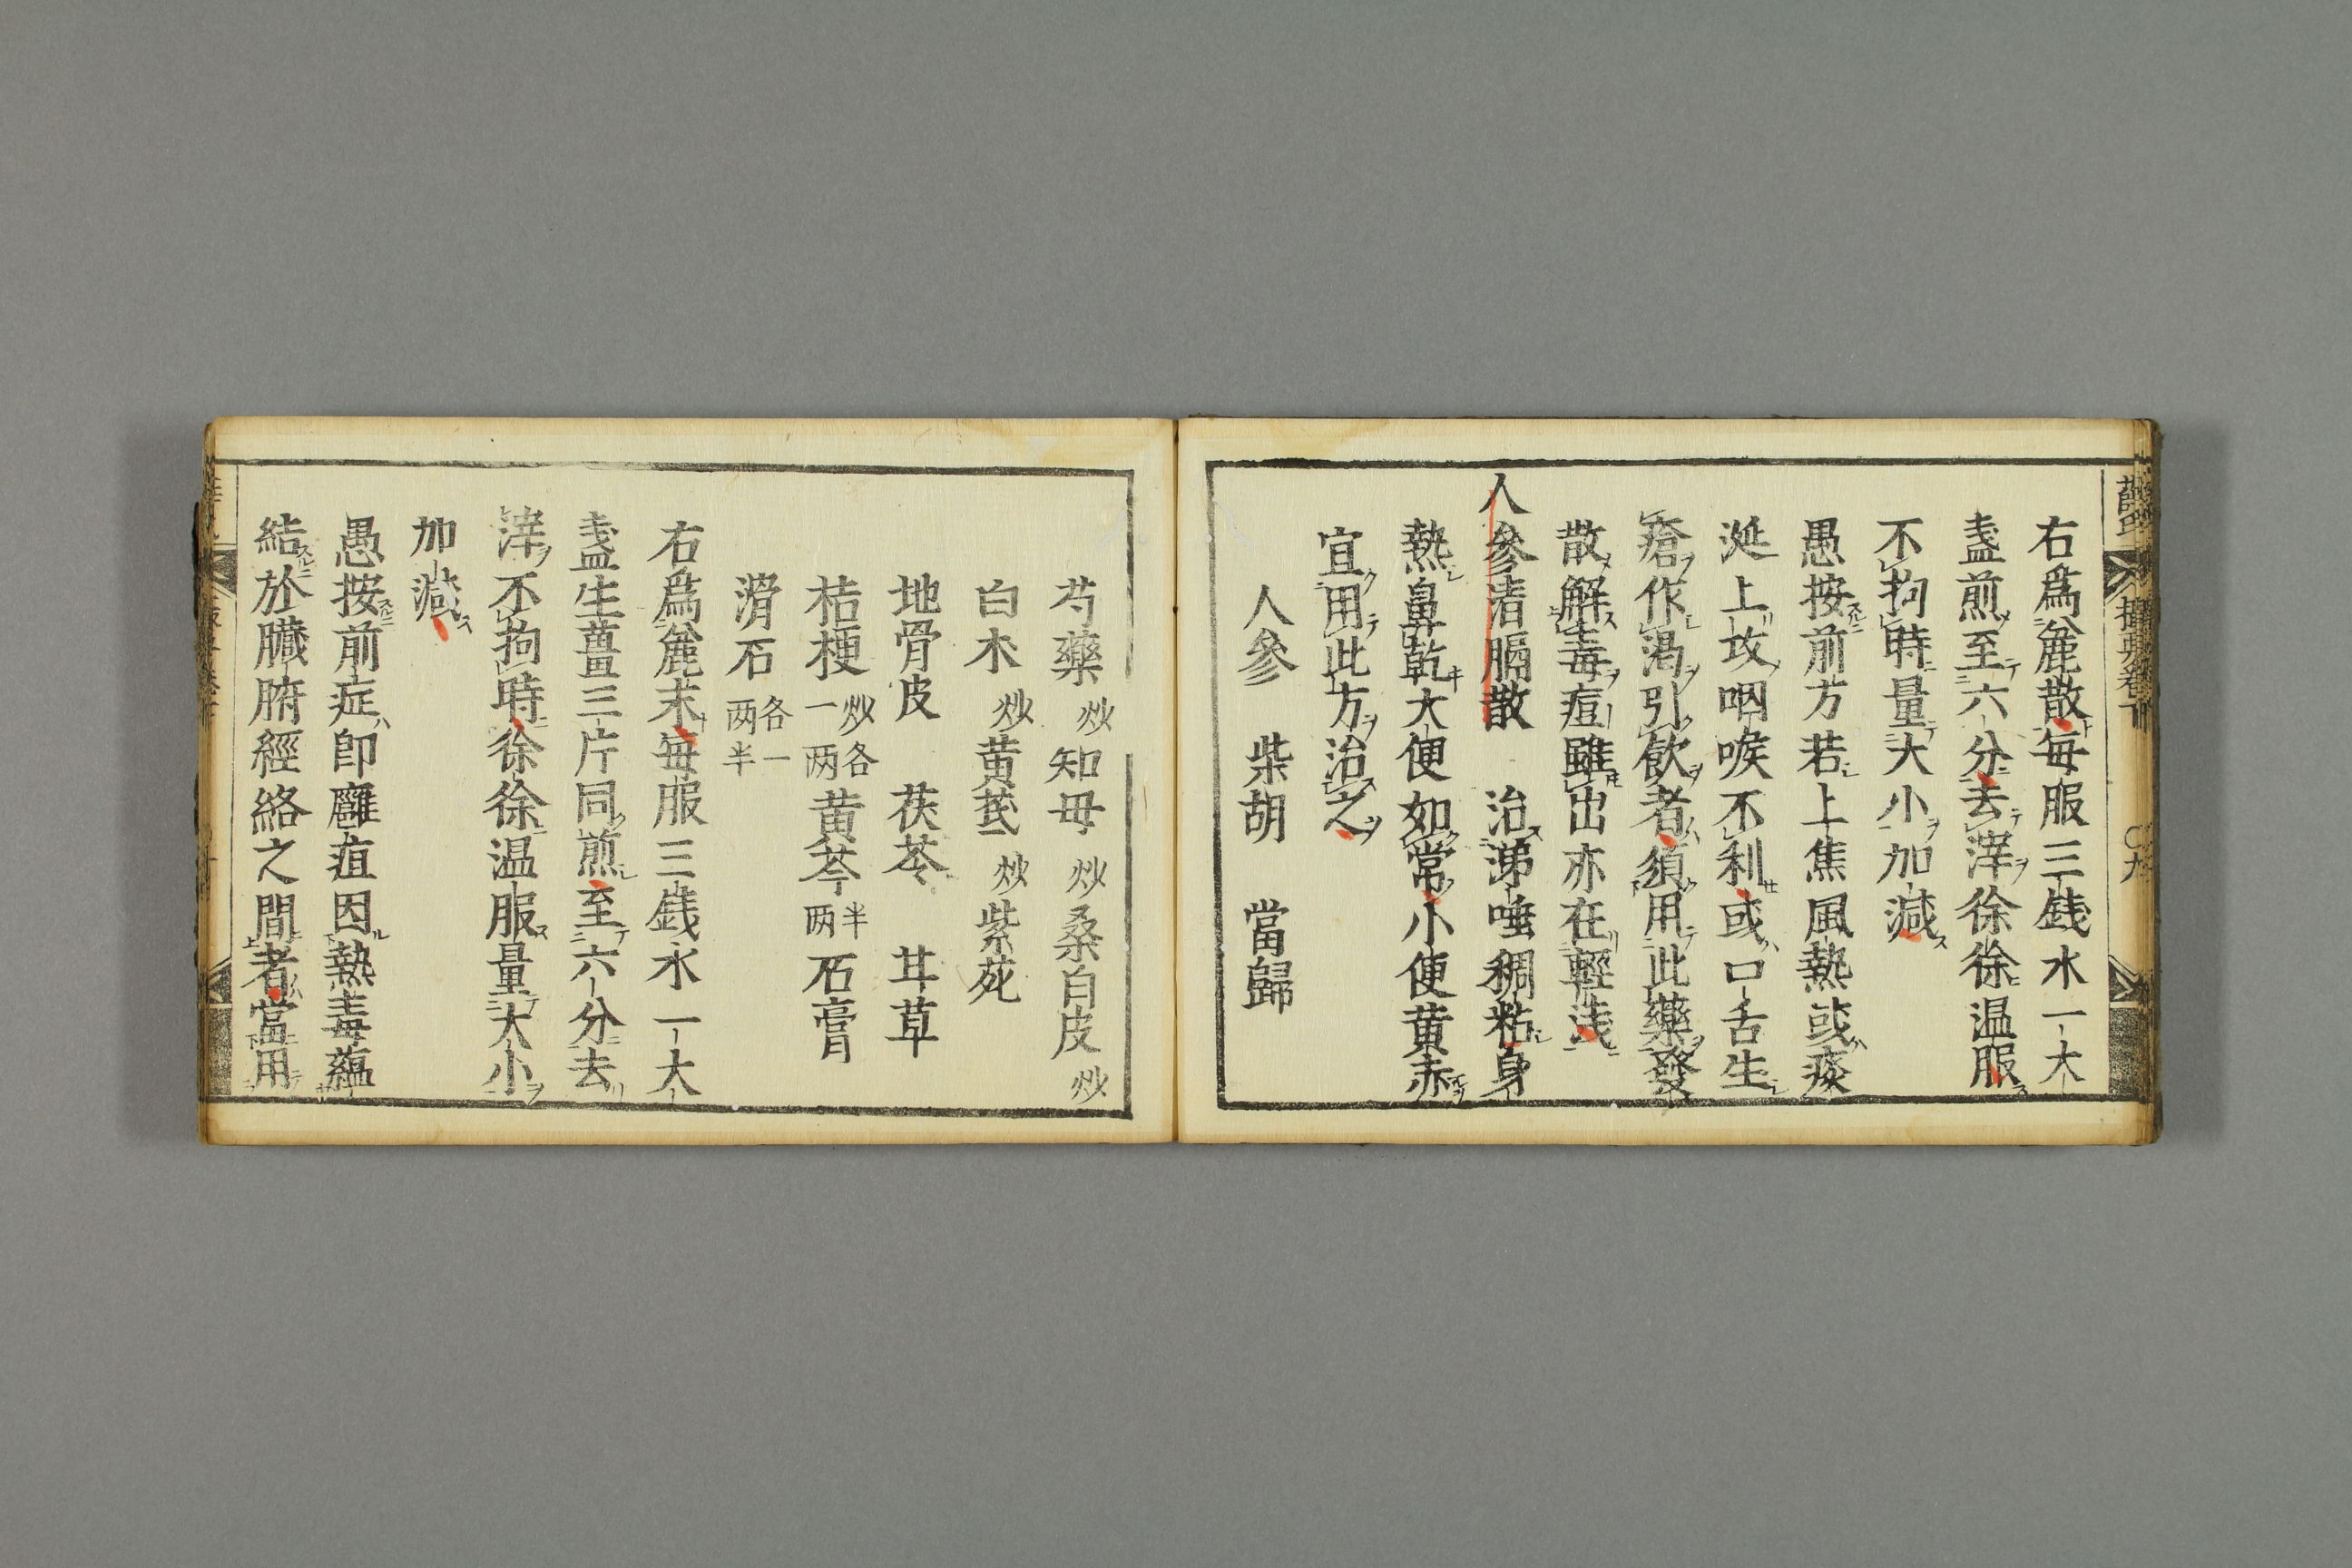 右爲麄散毎服三錢水一大
盞煎至六分去滓徐徐温服
不拘時量大小加減
愚按前方若上焦風熱或痰
涎上攻咽喉不利或口舌生
瘡作渇引飲者須用此藥發
散解毒痘雖出亦在輕淺
人參清膈散　治涕唾稠粘身
熱鼻乾大便如常小便黄赤
宜用此方治之
人參　柴胡　當歸
芍藥炒知母炒桑白皮炒
白朮炒黄芪炒紫菀
地骨皮　茯苓　甘草
桔梗炒各一両黄芩半両石膏
滑石各一両半
右爲麄末毎服三錢水一大
盞生薑三片同煎至六分去
滓不拘時徐徐温服量大小
加減
愚按前症即癰疽因熱毒蘊
結於臟腑經絡之間者當用